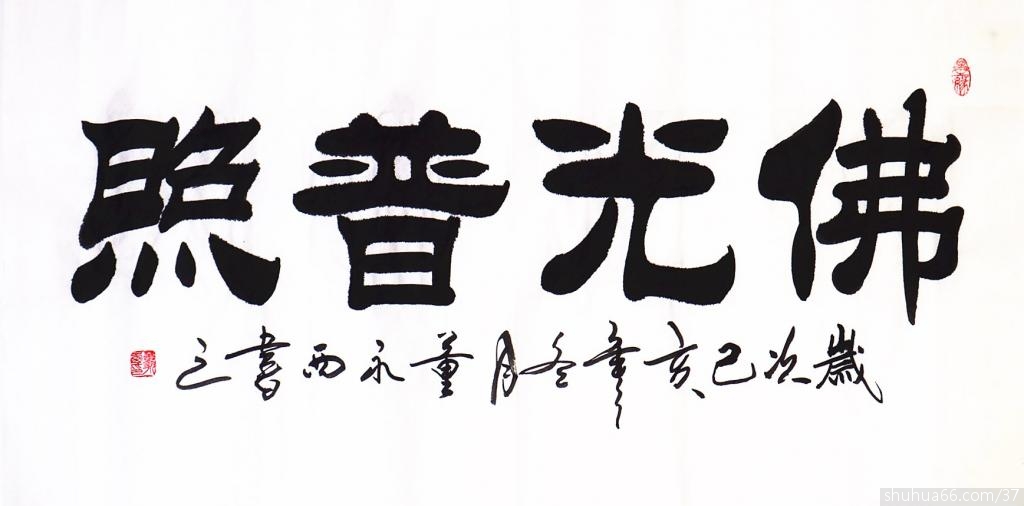 佛光普照
歲次己亥年冬月董永西書之
shuhua66.com/37